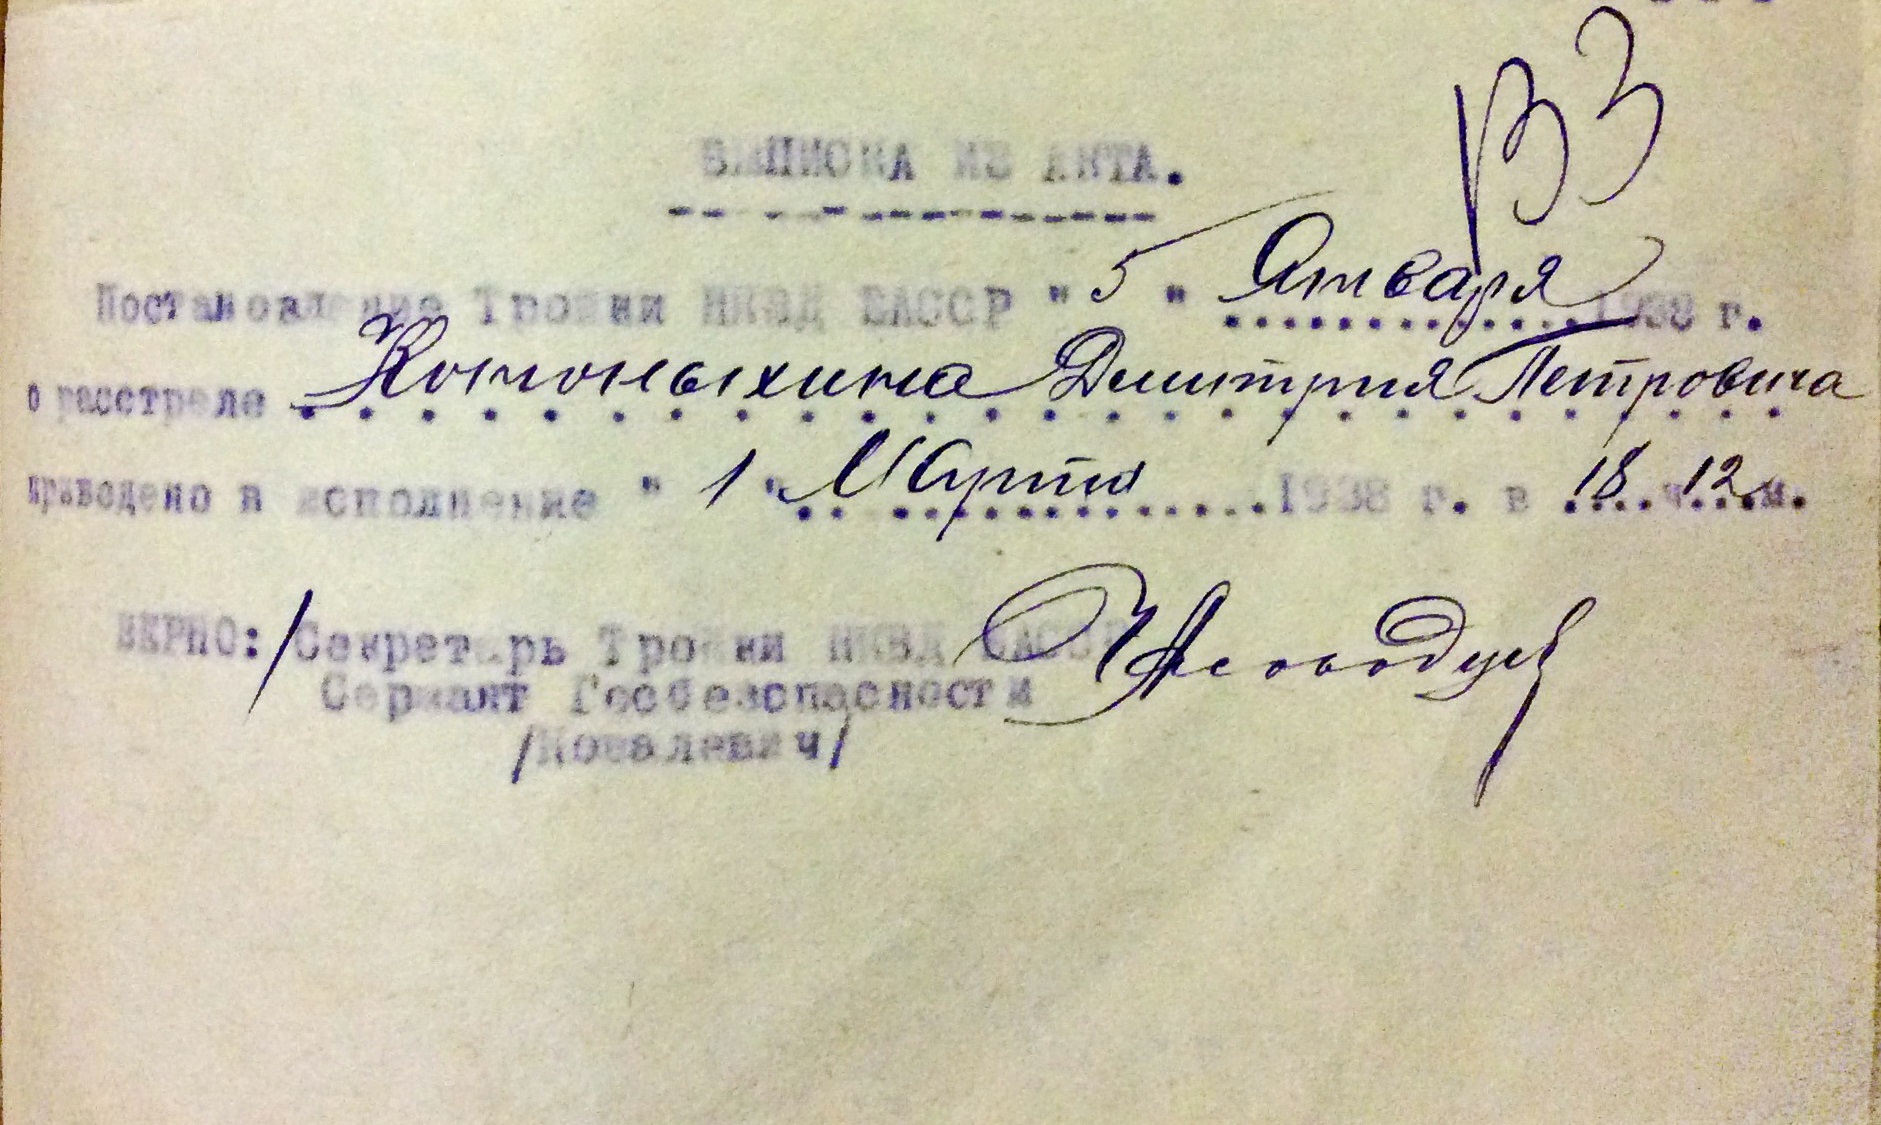 ВЗ
ВЫПИСКА ИЗ АКТА.
Постановление Тройки НКВД БАССР " 5 " Января 1938 г.
о расстреле Кононыхина Дмитрия Петровича
приведено в исполнение " 1 " Марта 1938 г. в 18 ч. 12 м.
ВЕРНО: /Секретарь Тройки НКВД БАССР
Сержант Госбезопасности
/Ковалевич/